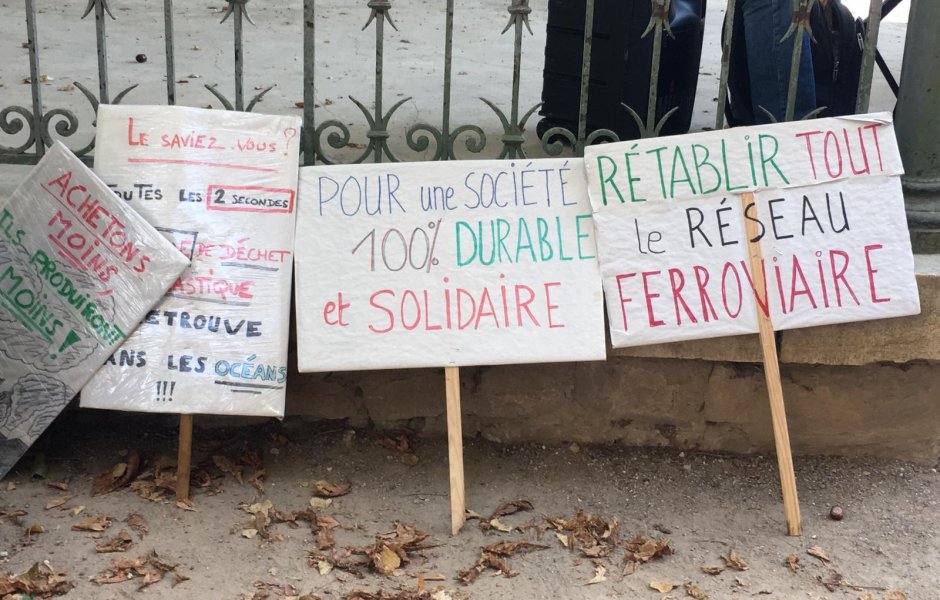 ACHETONS
MOINS,
ILS PRODUIRONT
MOINS!
LE SAVIEZ-VOUS?
TOUTES LES 2 SECONDES
DE DÉCHET
PLASTIQUE
RETROUVE
DANS LES OCÉANS
!!!
POUR une SOCIÉTÉ
100% DURABLE
et SOLIDAIRE
RÉTABLIR TOUT
le RÉSEAU
FERROVIAIRE